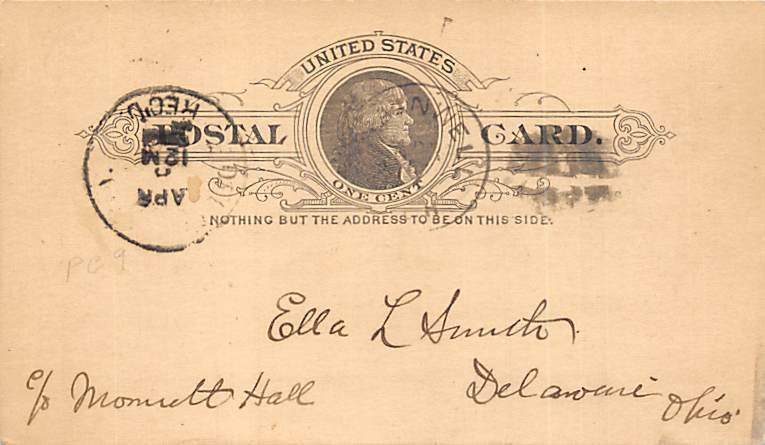 UNITED STATES
POSTAL CARD.
ONE CENT
NOTHING BUT THE ADDRESS TO BE ON THIS SIDE.
REC'D
12 M
APR
NEW
PC 9
Ella L Smith
c/o Monnett Hall
Delaware Ohio